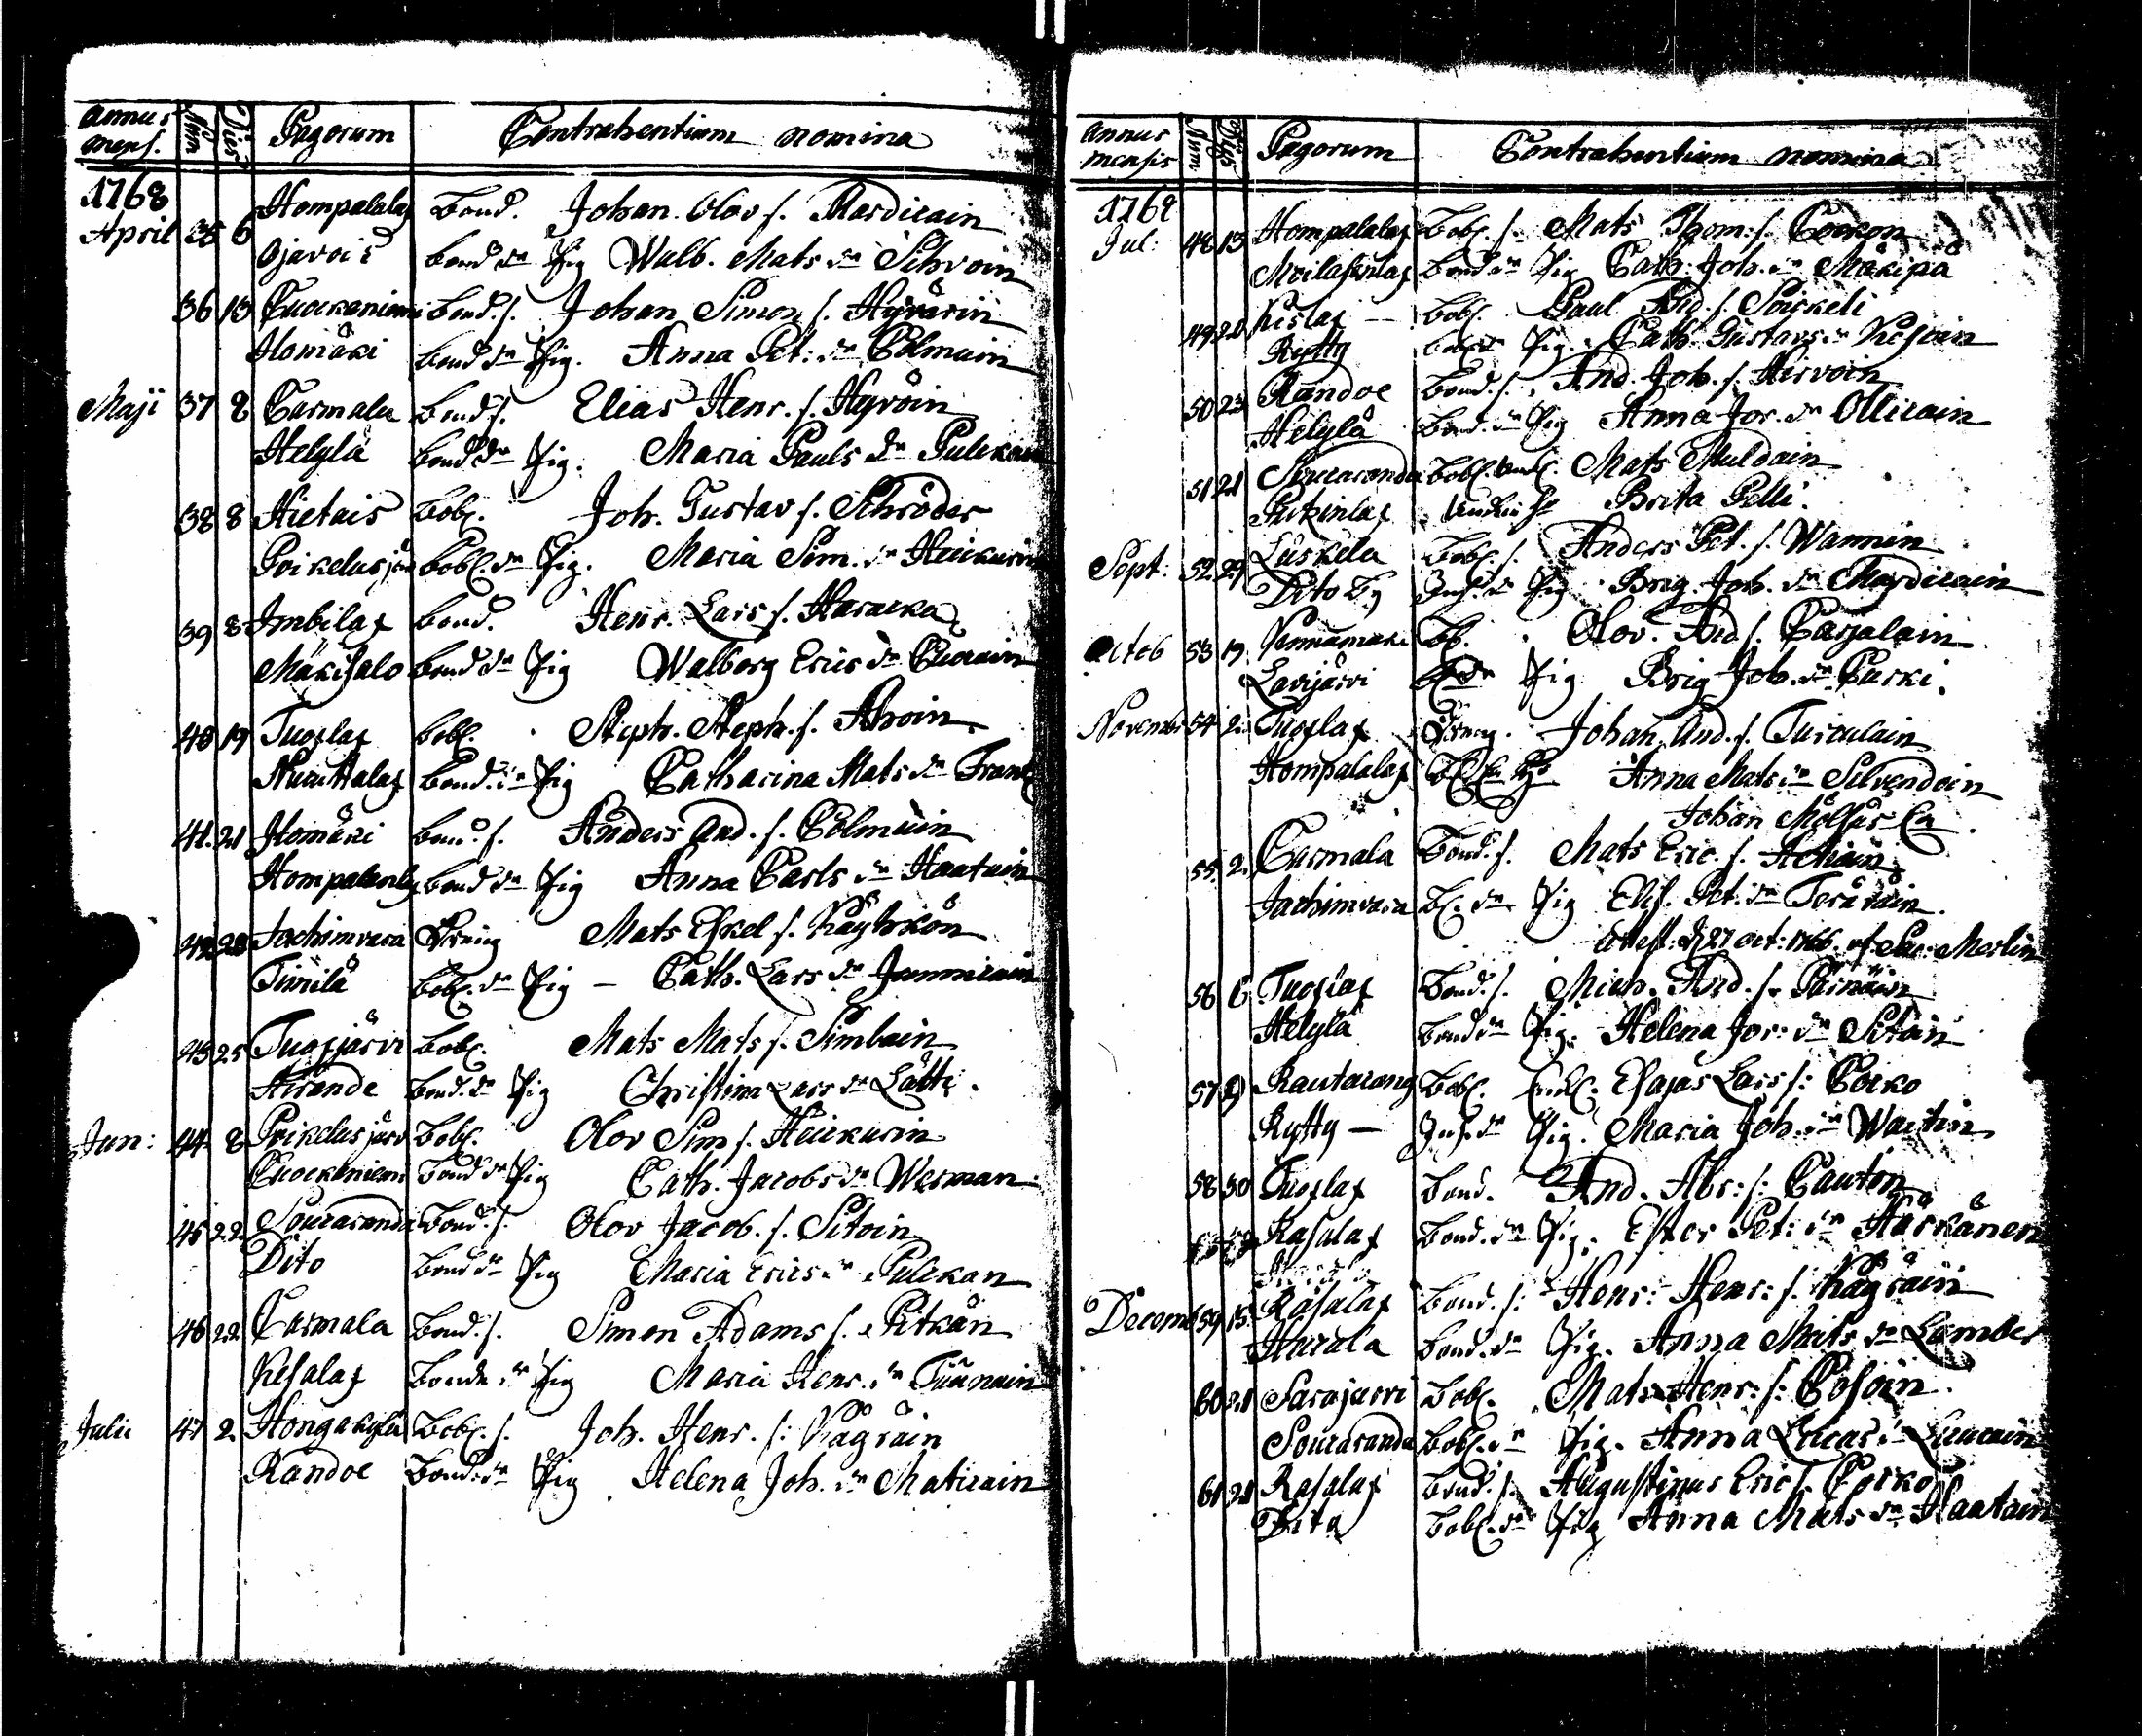 annus mens. Num Dies Pagorum Contrahentium nomina
1768
April 35 6 Hompalalax Bond. Johan Olov s. Mardicain
Ojavois bond dr Pig Walb. Mats dr Sihvoin
36 13 Cuockaniemi Bond. s. Johan Simon s. Hyvärin
Ilomäki bond dr Pig. Anna Pet: dr Colmuin
Maji 37 8 Carmala bond. s. Elias Henr. s. Hyvöin
Helylä bond dr Pig. Maria Pauls dr Pulckan
38 8 Hietais Bobl. Joh. Gustav s. Schröder
Poikelusjär Bobl. dr Pig. Maria Sim. dr Heikurin
39 8 Imbilax bond. Henr. Lars s. Haracka
Mäkisalo bond dr Pig Walborg Erics dr
40 19 Tuoslax bobl. Steph. Steph. s. Ahoin
bond. dr Pig Catharina Mats dr
41. 21 Ilomäki bond. s. Anders And. s. Colmuin
bond dr Pig Anna Carls dr Haatuin
42 22 Jachimvara Dreng Mats Eskel s. Käyhkön
Tiurila Bobl. dr Pig – Cath. Lars dr
43 25 Tuosjärvi bobl. Mats Mats s. Simlain
Hirande bond. dr Pig Christin Lars dr Lätti.
Jun: 44. 8 Poikelusjärv Bobl. Olov Sim s. Heikurin
Cuockaniemi bond dr Pig Cath. Jacobs dr Werman
45 22 Souraranda Bond. s. Olov Jacob. s. Sitoin
Dito Bond dr Pig Maria Erics dr Pulckan
46 22 Carmala Bond. s. Simon Adams s. Pitkän
Kesalax Bonde dr Pig Maria Henr. dr
Julii 47 2. Hongakylä Bobl. s. Joh. Henr. s: Kägräin
Randoe Bond. dr Pig Helena Joh. dr Maticain
annus mensis Num Dies Pagorum Contrahentium nomina
1768
Jul: 48 13 Hompalalax Bobl. s. Mats Thom: s. Cockon
bond dr Pig Cath: Joh. dr Mäkipä
49 20 Kislax – Bobl. Paul And. s. Poickeli
Rytty Pig. Cath. Gustavs dr Kosoin
50 23 Randoe Bond. s. And. Joh. s. Hirvoin
Helylä Bond. dr Pig Anna Jor. dr Ollicain
51 21 Souraranda Bobl. Mats Muldain
Brita Pelli.
Sept: 52. 29 Läskelä Bobl. s. Anders Pet. s. Wannin
Dito By dr Pig Brig. Joh. dr Mardicain
Octob 53 19. Bb. Olov. And s. Carjalain
Lavijärvi Pig Brig Joh. dr Curki.
November 54 2. Tuoslax Dreng. Johan And. s. Turculain
Hompalalax Anna Mats dr Silvendoin
Johan
55. 2. Curmala Bond. s. Mats Eric. s.
Jachimvara B. dr Pig Elis. Pet: dr Teräväin.
27 Oct: 1766. Merlin
56 6 Tuoslax Bond. s. Mich. And. s. Pärnäin
Helylä bond dr Pig. Helena Jor: dr Sitoin
57 9 Rautakang Bobl. Esajas Lars s: Corko
Rytty – dr Pig. Maria Joh. dr Wartin
58 30 Tuoslax Bond. And. Abr: s: Cauton
Rasalax Bond. dr Pig. Ester Pet: dr Härkänen
Decemb 59 15. Räsalax Bond. s: Henr: Henr: s. Kägräin
Harala bond. dr Pig. Anna Mats dr Lamber
60 21 Sarajarvi Bobl. Mats Henr: s: Cosoin.
Souraranda Bobl. dr Pig. Anna Lucas dr
61 21 Rasalax Bond. s. Augustinus Eric s. Corko
Dito Bobl. dr Pig Anna Mats dr Haatain